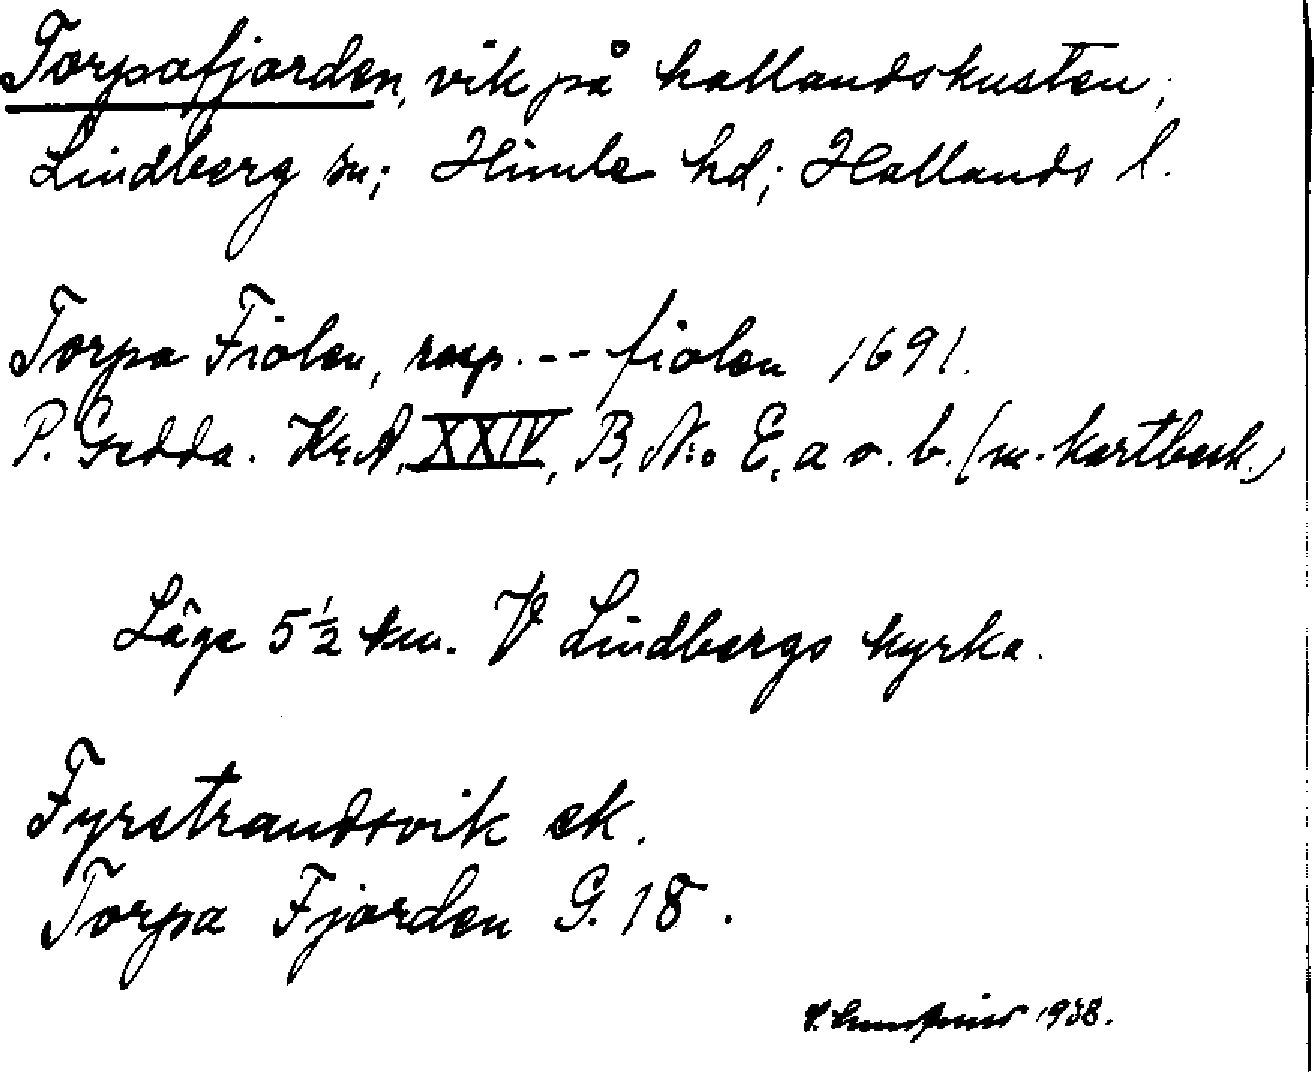 Torpafjorden, vik på hallandskusten;
Lindberg sn; Himle hd; Hallands l.
Torpa Fiolen, resp. -- fiolen 1691.
P. Gedda. Kr.A. XXIV, B, No E, a o. b. (m. kartbesk.)
Läge 5 1/2 km. V Lindbergs kyrka.
Fyrstrandsvik ek.
Torpa Fjorden G. 18.
1938.